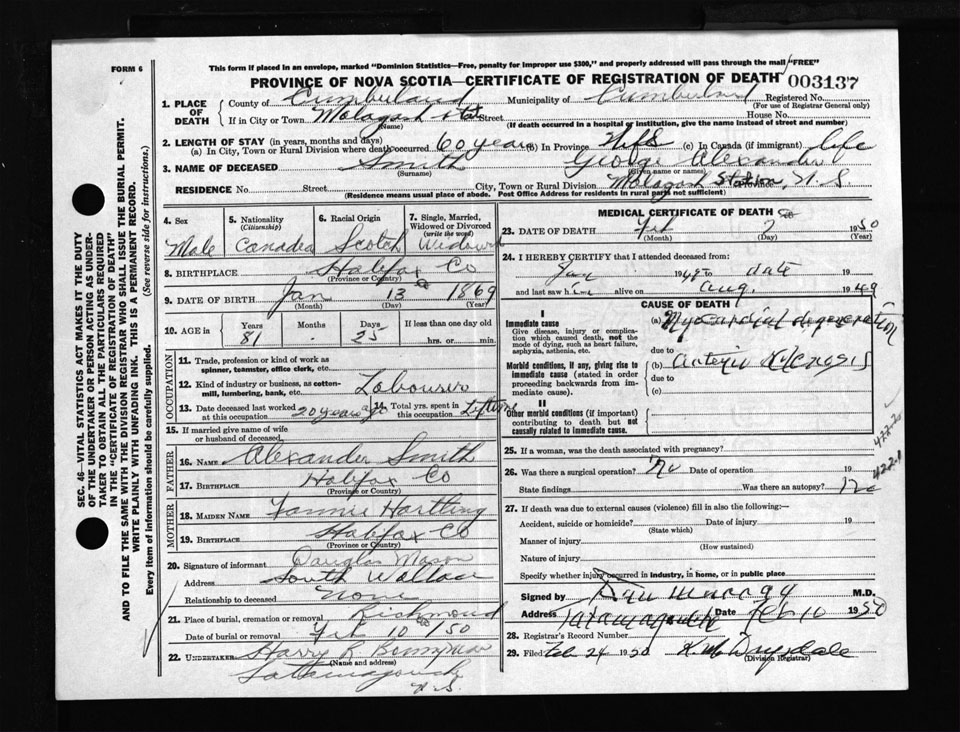 FORM 6
This form if placed in an envelope, marked "Dominion Statistics—Free, penalty for improper use $300," and properly addressed will pass through the mail "FREE"
PROVINCE OF NOVA SCOTIA—CERTIFICATE OF REGISTRATION OF DEATH 003137
SEC. 46—VITAL STATISTICS ACT MAKES IT THE DUTY
OF THE UNDERTAKER OR PERSON ACTING AS UNDER-
TAKER TO OBTAIN ALL THE PARTICULARS REQUIRED
IN THE "CERTIFICATE OF REGISTRATION OF DEATH"
AND TO FILE THE SAME WITH THE DIVISION REGISTRAR WHO SHALL ISSUE THE BURIAL PERMIT.
WRITE PLAINLY WITH UNFADING INK. THIS IS A PERMANENT RECORD.
Every item of information should be carefully supplied. (See reverse side for instructions.)
1. PLACE OF DEATH
County of Cumberland Municipality of Cumberland Registered No.
(For use of Registrar General only)
If in City or Town Malagash Street House No.
(Name) (If death occurred in a hospital or institution, give the name instead of street and number)
2. LENGTH OF STAY (in years, months and days)
(a) In City, Town or Rural Division where death occurred 60 years (b) In Province life (c) In Canada (if immigrant) life
3. NAME OF DECEASED Smith George Alexander
(Surname) (Given name or names)
RESIDENCE No. Street City, Town or Rural Division Malagash Station, N.S
(Residence means usual place of abode. Post Office Address for residents in rural parts not sufficient)
4. Sex Male
5. Nationality (Citizenship) Canadian
6. Racial Origin Scotch
7. Single, Married, Widowed or Divorced (write the word) Widowed
8. BIRTHPLACE Halifax Co
(Province or Country)
9. DATE OF BIRTH Jan 13 1869
(Month) (Day) (Year)
10. AGE in Years Months Days If less than one day
81 25 hrs. or min.
OCCUPATION
11. Trade, profession or kind of work as spinner, teamster, office clerk, etc.
12. Kind of industry or business, as cotton-mill, lumbering, bank, etc. Labourer
13. Date deceased last worked at this occupation 20 years ago 14. Total yrs. spent in this occupation Lifetime
15. If married give name of wife or husband of deceased
FATHER
16. NAME Alexander Smith
17. BIRTHPLACE Halifax Co
(Province or Country)
MOTHER
18. MAIDEN NAME Fannie Hartling
19. BIRTHPLACE Halifax Co
(Province or Country)
20. Signature of informant Douglas Mason
Address South Wallace
Relationship to deceased None
21. Place of burial, cremation or removal Richmond
Date of burial or removal Feb 10/50
22. UNDERTAKER Harry R Bonnyman
(Name and address)
Tatamagouche
N.S.
MEDICAL CERTIFICATE OF DEATH
23. DATE OF DEATH Feb 7 1950
(Month) (Day) (Year)
24. I HEREBY CERTIFY that I attended deceased from:
Jan 1948 to date 19
and last saw him alive on Aug. 1949
CAUSE OF DEATH
I
Immediate cause
Give disease, injury or complication which caused death, not the mode of dying, such as heart failure, asphyxia, asthenia, etc.
(a) Myocardial degeneration
due to
Morbid conditions, if any, giving rise to immediate cause (stated in order proceeding backwards from immediate cause).
(b)
due to
(c)
II
Other morbid conditions (if important) contributing to death but not causally related to immediate cause.
422-1
25. If a woman, was the death associated with pregnancy?
26. Was there a surgical operation? No Date of operation 19
State findings Was there an autopsy? No
27. If death was due to external causes (violence) fill in also the following:—
Accident, suicide or homicide? Date of injury 19
(State which)
Manner of injury
(How sustained)
Nature of injury
Specify whether injury occurred in industry, in home, or in public place
Signed by M.D.
Address Tatamagouche Date Feb 10 1950
28. Registrar's Record Number
29. Filed Feb 24 1950 Drysdale
(Division Registrar)